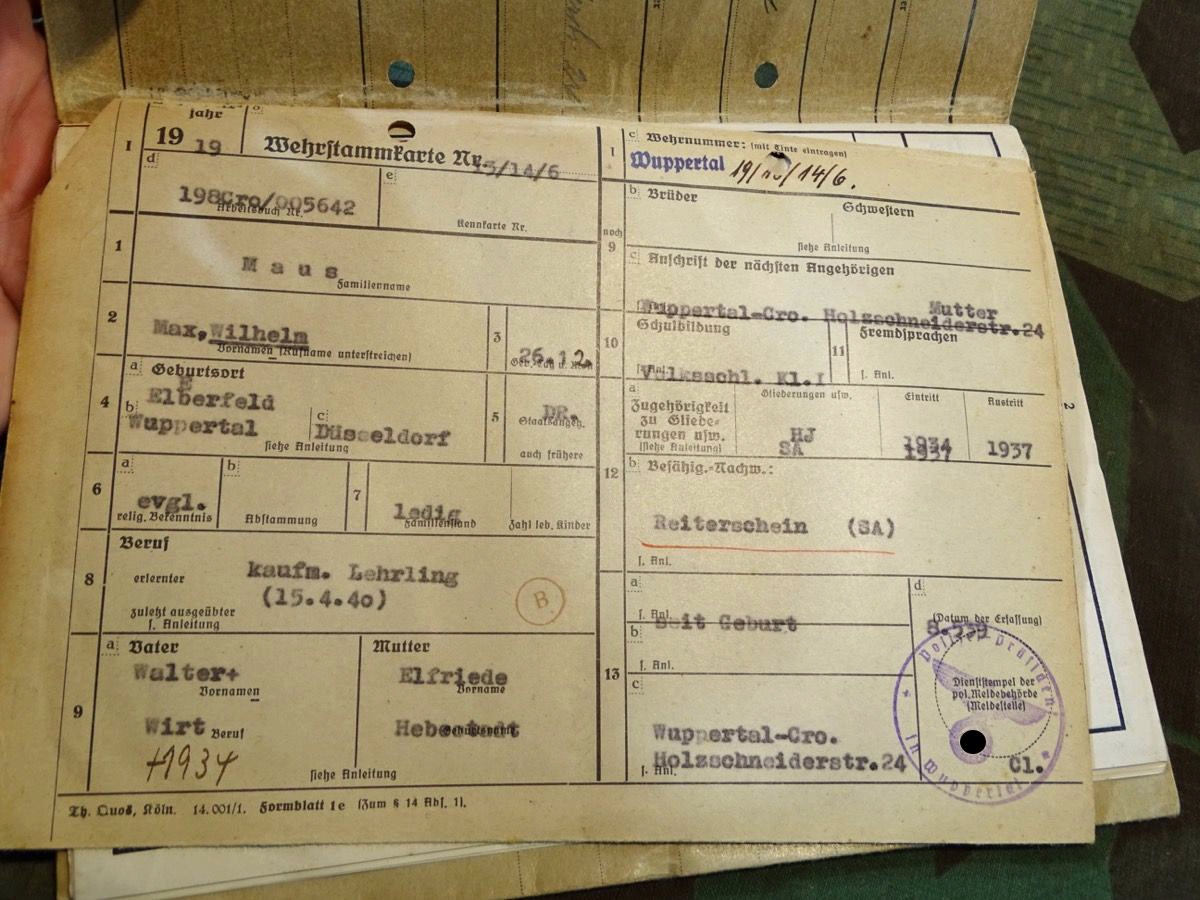 I
Jahr
19 19
Wehrstammkarte Nr. /14/6
d
198Cro/005642
Arbeitsbuch Nr.
e
Kennkarte Nr.
1
Maus
Familienname
2
Max, Wilhelm
Vornamen (Rufname unterstreichen)
3
26.12.
4
a Geburtsort
E
Elberfeld
b
Wuppertal
c
Düsseldorf
siehe Anleitung
5
DR.
Staatsangeh.
auch frühere
6
a
evgl.
relig. Bekenntnis
b
Abstammung
7
ledig
Familienstand
Zahl leb. Kinder
8
Beruf
erlernter
kaufm. Lehrling
(15.4.40)
zuletzt ausgeübter
s. Anleitung
B.
9
a Vater
Walter+
Vornamen
Wirt Beruf
+1934
Mutter
Elfriede
Vorname
siehe Anleitung
Th. Quos, Köln. 14.001/1. Formblatt 1e (Zum § 14 Abs. 1).
I
c Wehrnummer: (mit Tinte eintragen)
Wuppertal 19/ /14/6.
noch
9
b Brüder
Schwestern
siehe Anleitung
c Anschrift der nächsten Angehörigen
Mutter
Wuppertal-Cro. Holzschneiderstr.24
10
Schulbildung
Volksschl. Kl.I
s. Anl.
11
Fremdsprachen
s. Anl.
12
a
Zugehörigkeit
zu Gliede-
rungen usw.
(siehe Anleitung)
Gliederungen usw.
Eintritt
Austritt
HJ 1934
SA 1937 1937
b Befähig.-Nachw.:
Reiterschein (SA)
s. Anl.
13
a
s. Anl.
Seit Geburt
b
s. Anl.
c
Wuppertal-Cro.
Holzschneiderstr.24
s. Anl.
d
(Datum der Erfassung)
Dienststempel der
pol. Meldebehörde
(Meldestelle)
Cl.
in Wuppertal
2